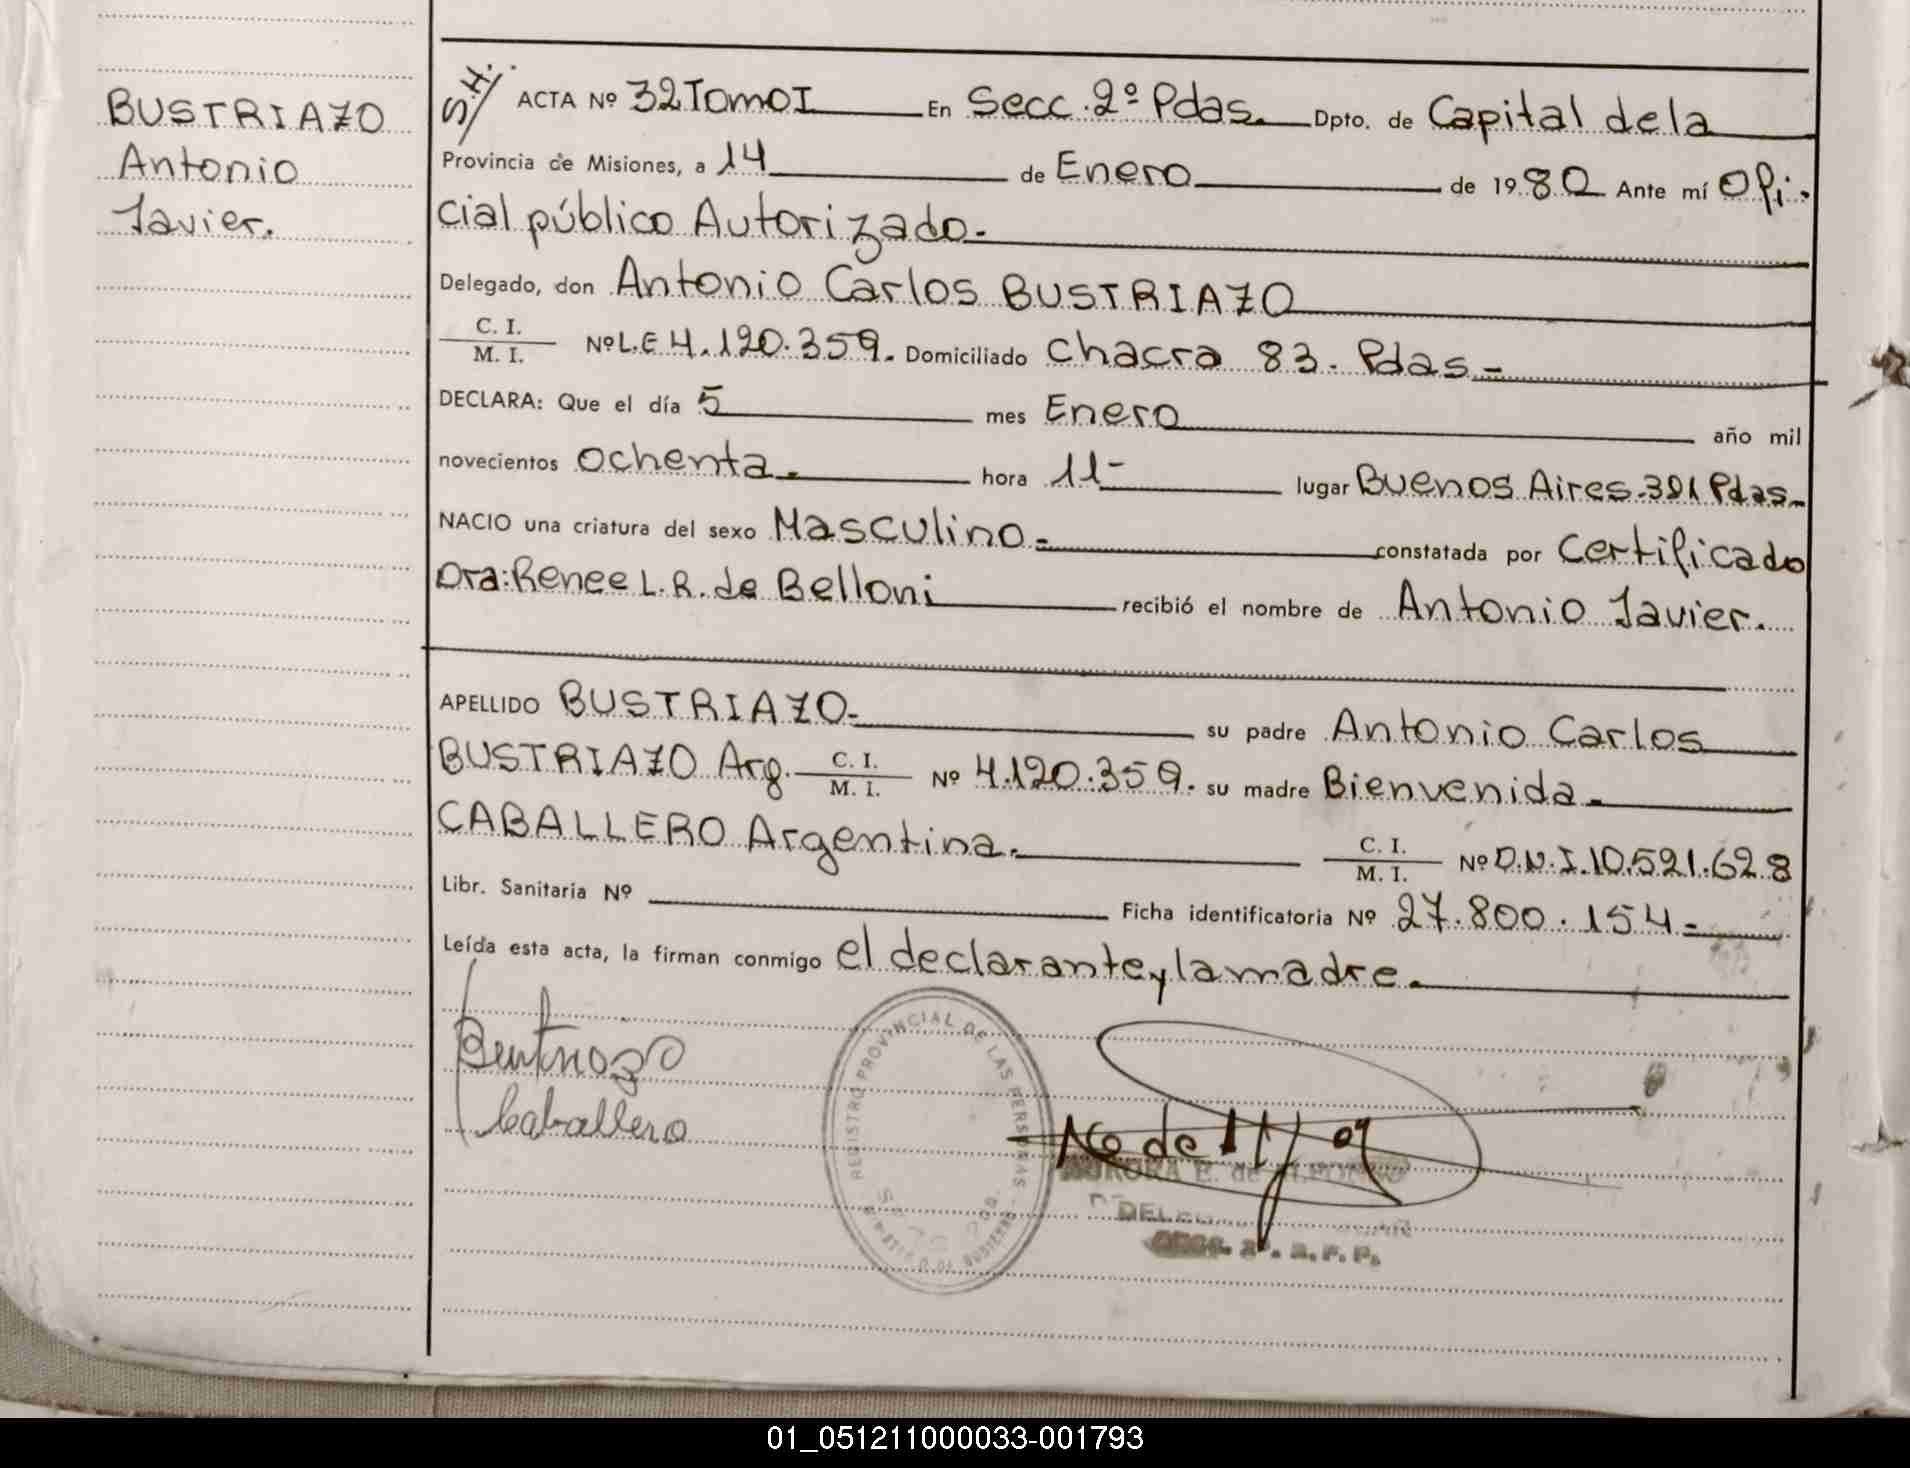 BUSTRIAZO
Antonio
Javier.
S.H.
ACTA Nº 32 Tomo I En Secc. 2º Pdas. Dpto. de Capital de la
Provincia de Misiones, a 14 de Enero de 1980 Ante mí Ofi-
cial público Autorizado.-
Delegado, don Antonio Carlos BUSTRIAZO
C. I.
M. I. Nº L.E 4.120.359. Domiciliado Chacra 83. Pdas.-
DECLARA: Que el día 5 mes Enero año mil
novecientos Ochenta.- hora 11- lugar Buenos Aires-391 Pdas.-
NACIO una criatura del sexo Masculino.- constatada por Certificado
Dra: Renee L. R. de Belloni recibió el nombre de Antonio Javier.
APELLIDO BUSTRIAZO.- su padre Antonio Carlos
BUSTRIAZO Arg. C. I. M. I. Nº 4.120.359. su madre Bienvenida.-
CABALLERO Argentina.- C. I. M. I. Nº D.N.I. 10.521.628
Libr. Sanitaria Nº Ficha identificatoria Nº 27.800.154-
Leída esta acta, la firman conmigo el declarante y la madre.
Caballero
REGISTRO PROVINCIAL DE LAS PERSONAS
AURORA E. de
01_051211000033-001793